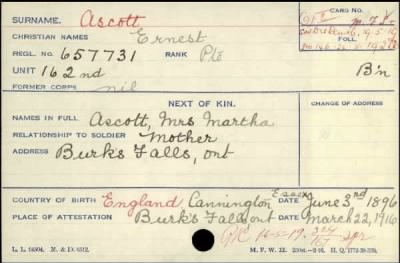 SURNAME. Ascott
CARD NO.
CHRISTIAN NAMES Ernest
REGL. NO. 657731 RANK Pte
FOLL.
UNIT 162nd B'n
FORMER CORPS nil
NEXT OF KIN. CHANGE OF ADDRESS
NAMES IN FULL Ascott, Mrs Martha
RELATIONSHIP TO SOLDIER Mother
ADDRESS Burk's Falls, ont
COUNTRY OF BIRTH England Cannington Essex DATE June 3rd 1896
PLACE OF ATTESTATION Burk's Falls, ont DATE March 22, 1916
16-5-19.
L. L. 94504. M. & D. 6512. M. F. W. 22.